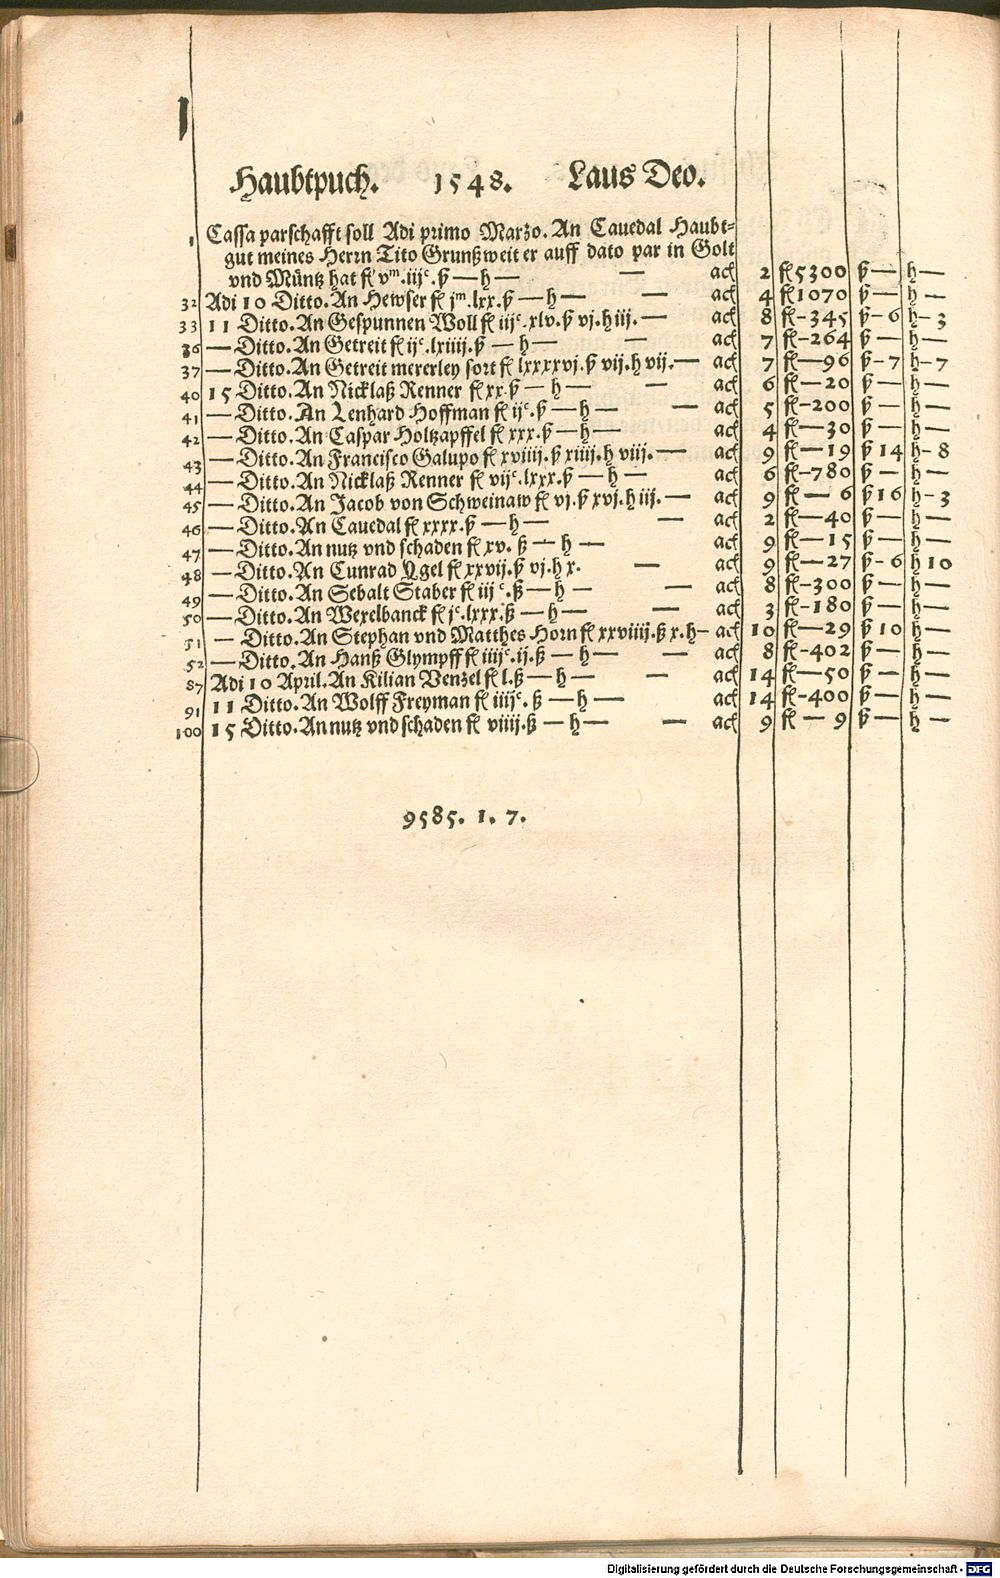 1
Haubtpuch. 1548. Laus Deo.
1 Cassa parschafft soll Adi primo Marzo. An Cauedal Haubt-
gut meines Herrn Tito Grunß weit er auff dato par in Golt
vnd Müntz hat fl vᵐ.iijᶜ.ß — h — — act 2 fl 5300 ß — h —
32 Adi 10 Ditto. An Hewser fl jᵐ.lxx.ß — h — — act 4 fl 1070 ß — h —
33 11 Ditto. An Gespunnen Woll fl iijᶜ.xlv.ß vj.h iij. — act 8 fl - 345 ß - 6 h - 3
36 — Ditto. An Getreit fl ijᶜ.lxiiij.ß — h — — act 7 fl - 264 ß — h —
37 — Ditto. An Getreit mererley sort fl lxxxxvj.ß vij.h vij. — act 7 fl — 96 ß - 7 h - 7
40 15 Ditto. An Nicklaß Renner fl xx.ß — h — — act 6 fl — 20 ß — h —
41 — Ditto. An Lenhard Hoffman fl ijᶜ.ß — h — — act 5 fl - 200 ß — h —
42 — Ditto. An Caspar Holtzapffel fl xxx.ß — h — act 4 fl — 30 ß — h —
43 — Ditto. An Francisco Galupo fl xviiij.ß xiiij.h viij. — act 9 fl — 19 ß 14 h - 8
44 — Ditto. An Nicklaß Renner fl vijᶜ.lxxx.ß — h — act 6 fl - 780 ß — h —
45 — Ditto. An Jacob von Schweinaw fl vj.ß xvj.h iij. — act 9 fl — 6 ß 16 h - 3
46 — Ditto. An Cauedal fl xxxx.ß — h — — act 2 fl — 40 ß — h —
47 — Ditto. An nutz vnd schaden fl xv. ß — h — act 9 fl — 15 ß — h —
48 — Ditto. An Cunrad Ygel fl xxvij.ß vj.h x. — act 9 fl — 27 ß - 6 h 10
49 — Ditto. An Sebalt Staber fl iijᶜ.ß — h — — act 8 fl - 300 ß — h —
50 — Ditto. An Wexelbanck fl jᶜ.lxxx.ß — h — — act 3 fl - 180 ß — h —
51 — Ditto. An Stephan vnd Matthes Horn fl xxviiij.ß x.h — act 10 fl — 29 ß 10 h —
52 — Ditto. An Hanß Glympff fl iiijᶜ.ij.ß — h — — act 8 fl - 402 ß — h —
87 Adi 10 April. An Kilian Venzel fl l.ß — h — — act 14 fl — 50 ß — h —
91 11 Ditto. An Wolff Freyman fl iiijᶜ. ß — h — act 14 fl - 400 ß — h —
100 15 Ditto. An nutz vnd schaden fl viiij.ß — h — — act 9 fl — 9 ß — h —
9585. 1. 7.
Digitalisierung gefördert durch die Deutsche Forschungsgemeinschaft - DFG